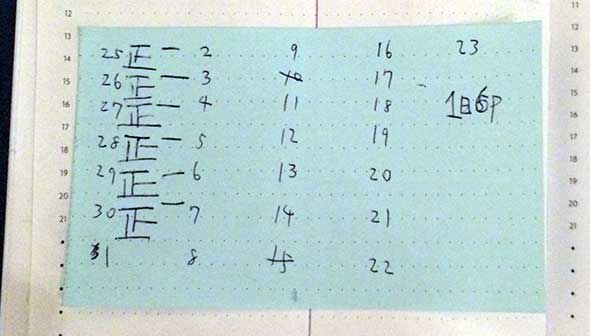 12
13
14
15
16
17
18
19
20
21
25 正一 2 9 16 23
26 正一 3 10 17
27 正一 4 11 18
1日6P
28 正一 5 12 19
29 正一 6 13 20
30 正一 7 14 21
31 8 15 22
11
12
13
14
15
16
17
18
19
20
21